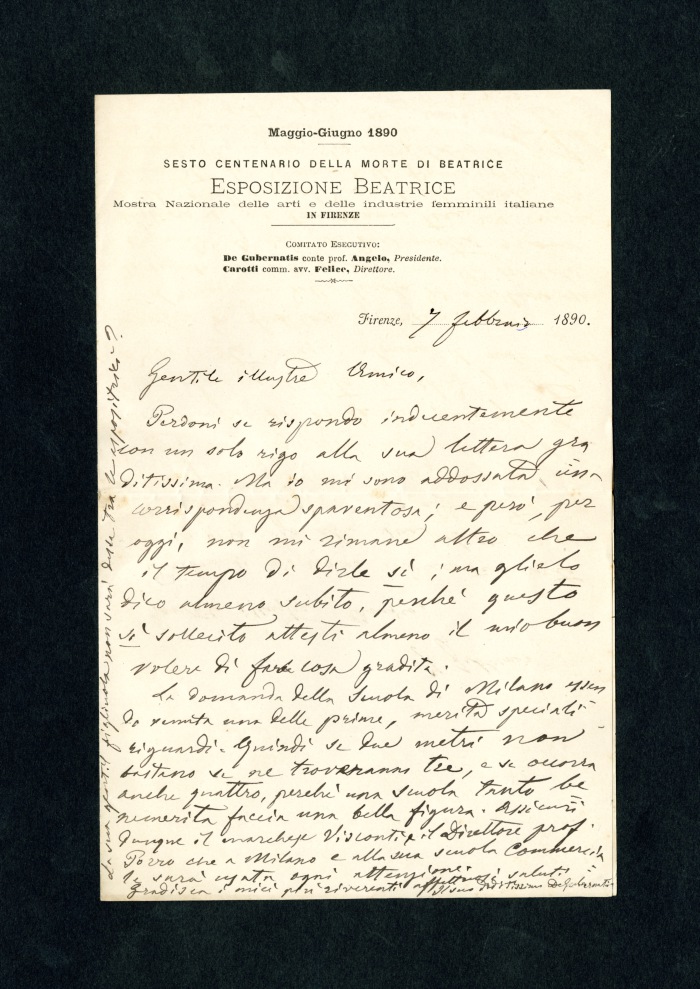 Maggio-Giugno 1890
SESTO CENTENARIO DELLA MORTE DI BEATRICE
ESPOSIZIONE BEATRICE
Mostra Nazionale delle arti e delle industrie femminili italiane
IN FIRENZE
COMITATO ESECUTIVO:
De Gubernatis conte prof. Angelo, Presidente.
Carotti comm. avv. Felice, Direttore.
Firenze, 7 febbraio 1890.
Gentile illustre Amico,
Perdoni se rispondo indecentemente
con un solo rigo alla sua lettera gra
ditissima. Ma io mi sono addossata una
corrispondenza spaventosa; e però, per
oggi, non mi rimane altro che
il tempo di dirle sì; ma glielo
dico almeno subito, perché questo
sì sollecito attesti almeno il mio buon
volere di far cosa gradita.
La domanda della Scuola di Milano essen
do venuta una delle prime, merita speciali
riguardi. Quindi se due metri non
bastano se ne troveranno tre, e se occorra
anche quattro, perché una scuola tanto be
nemerita faccia una bella figura. Assicuri
dunque il marchese Visconti e il Direttore prof.
Porro che a Milano e alla sua scuola Commercia
le sarà usata ogni attenzione.
Gradisca i miei più riverenti affettuosi saluti
Il suo devotissimo DeGubernatis
La sua gentil figliuola non sarà dessa tra le espositrici?